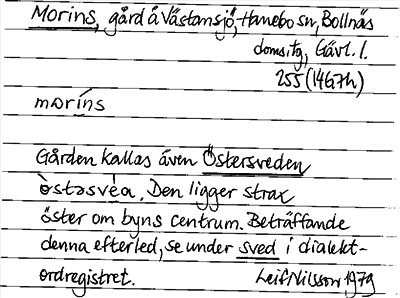 Morins, gård å Västansjö, Hanebo sn, Bollnäs
domsag, Gävl. l.
255 (14G7h)
morins
Gården kallas även Östersveden
östəsvéa. Den ligger strax
öster om byns centrum. Beträffande
denna efterled, se under sved i dialekt-
ordregistret. Leif Nilsson 1979